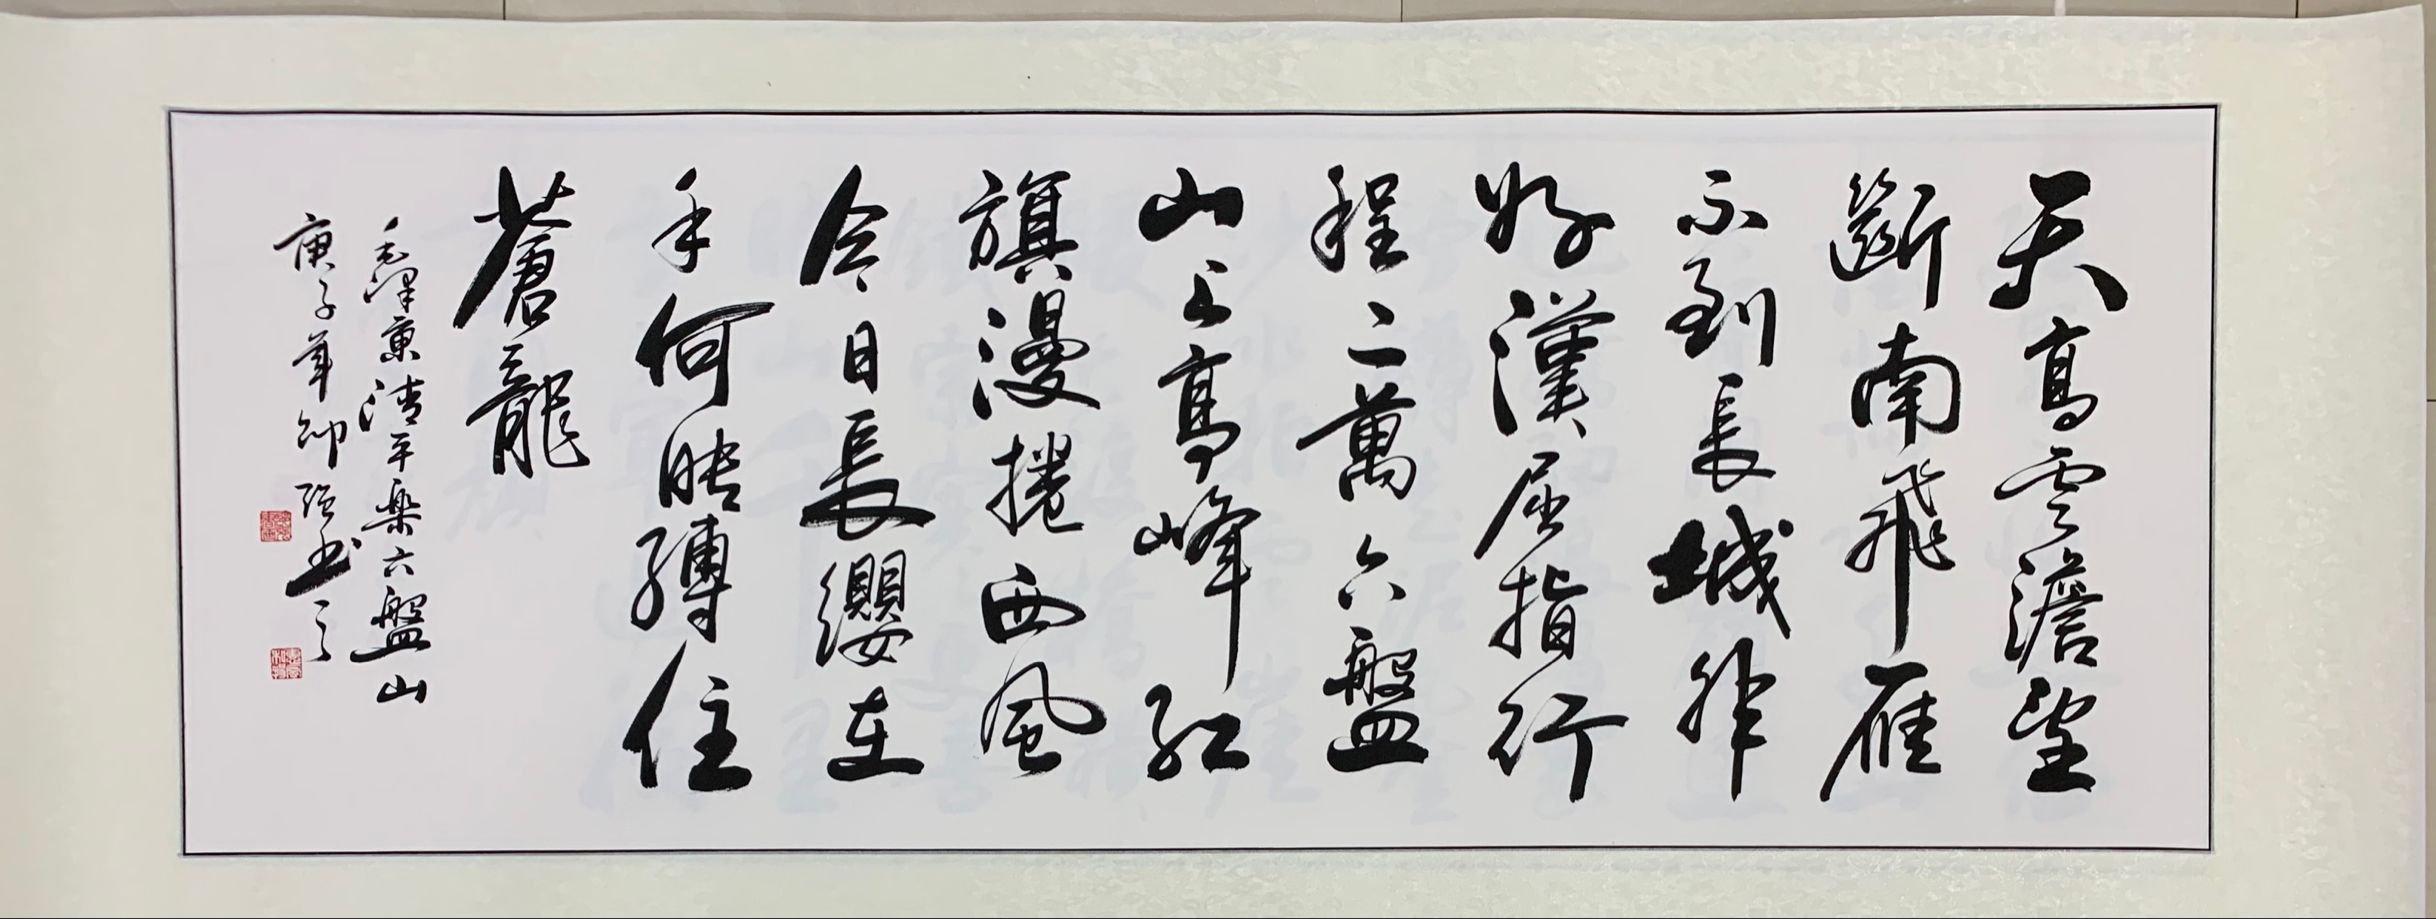 天高雲澹望
斷南飛雁
不到長城非
好漢屈指行
程二萬六盤
山上高峰紅
旗漫捲西風
今日長纓在
手何時縛住
蒼龍
毛澤東清平樂六盤山
庚子年帅强书之